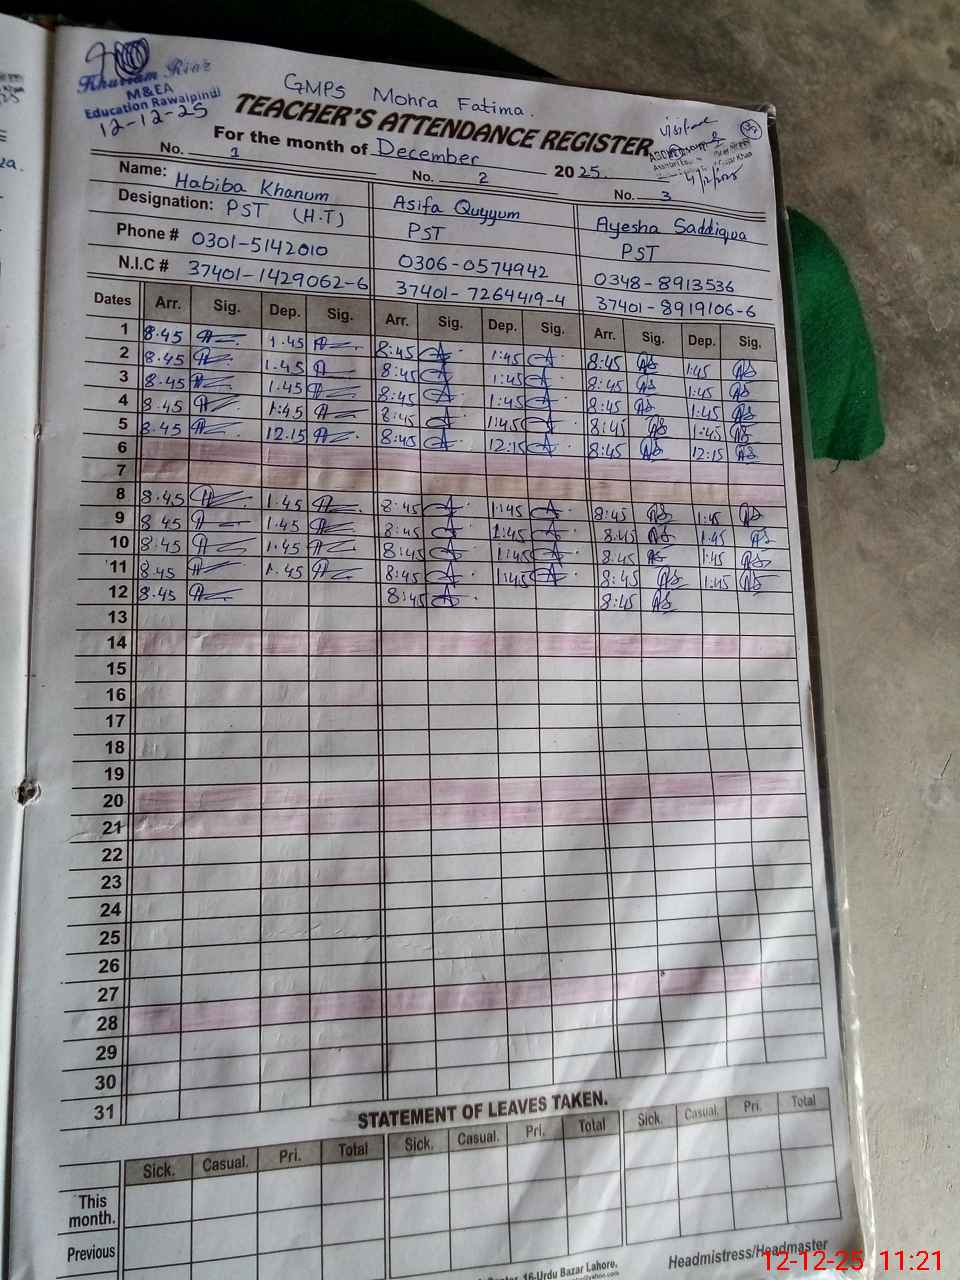 Khurram Riaz
M&EA
Education Rawalpindi
12-12-25
GMPS Mohra Fatima.
TEACHER'S ATTENDANCE REGISTER
For the month of December 2025.
visited
No. 1 No. 2 No. 3
Name: Habiba Khanum Asifa Quyyum Ayesha Saddiqua
Designation: PST (H.T) PST PST
Phone # 0301-5142010 0306-0574942 0348-8913536
N.I.C # 37401-1429062-6 37401-7264419-4 37401-8919106-6
Dates Arr. Sig. Dep. Sig. Arr. Sig. Dep. Sig. Arr. Sig. Dep. Sig.
1 8.45 1.45 8:45 1:45 8:45 1:45
2 8.45 1.45 8:45 1:45 8:45 1:45
3 8.45 1.45 8:45 1:45 8:45 1:45
4 8.45 1.45 8:45 1:45 8:45 1:45
5 8.45 12.15 8:45 12:15 8:45 12:15
6
7
8 8.45 1.45 8:45 1:45 8:45 1:45
9 8.45 1.45 8:45 1:45 8:45 1:45
10 8:45 1.45 8:45 1:45 8:45 1:45
11 8.45 1.45 8:45 1:45 8:45 1:45
12 8.45 8:45 8:45
13
14
15
16
17
18
19
20
21
22
23
24
25
26
27
28
29
30
31
STATEMENT OF LEAVES TAKEN.
Sick. Casual. Pri. Total Sick. Casual. Pri. Total Sick. Casual. Pri. Total
This month.
Previous
16-Urdu Bazar Lahore.
Headmistress/Headmaster
12-12-25 11:21